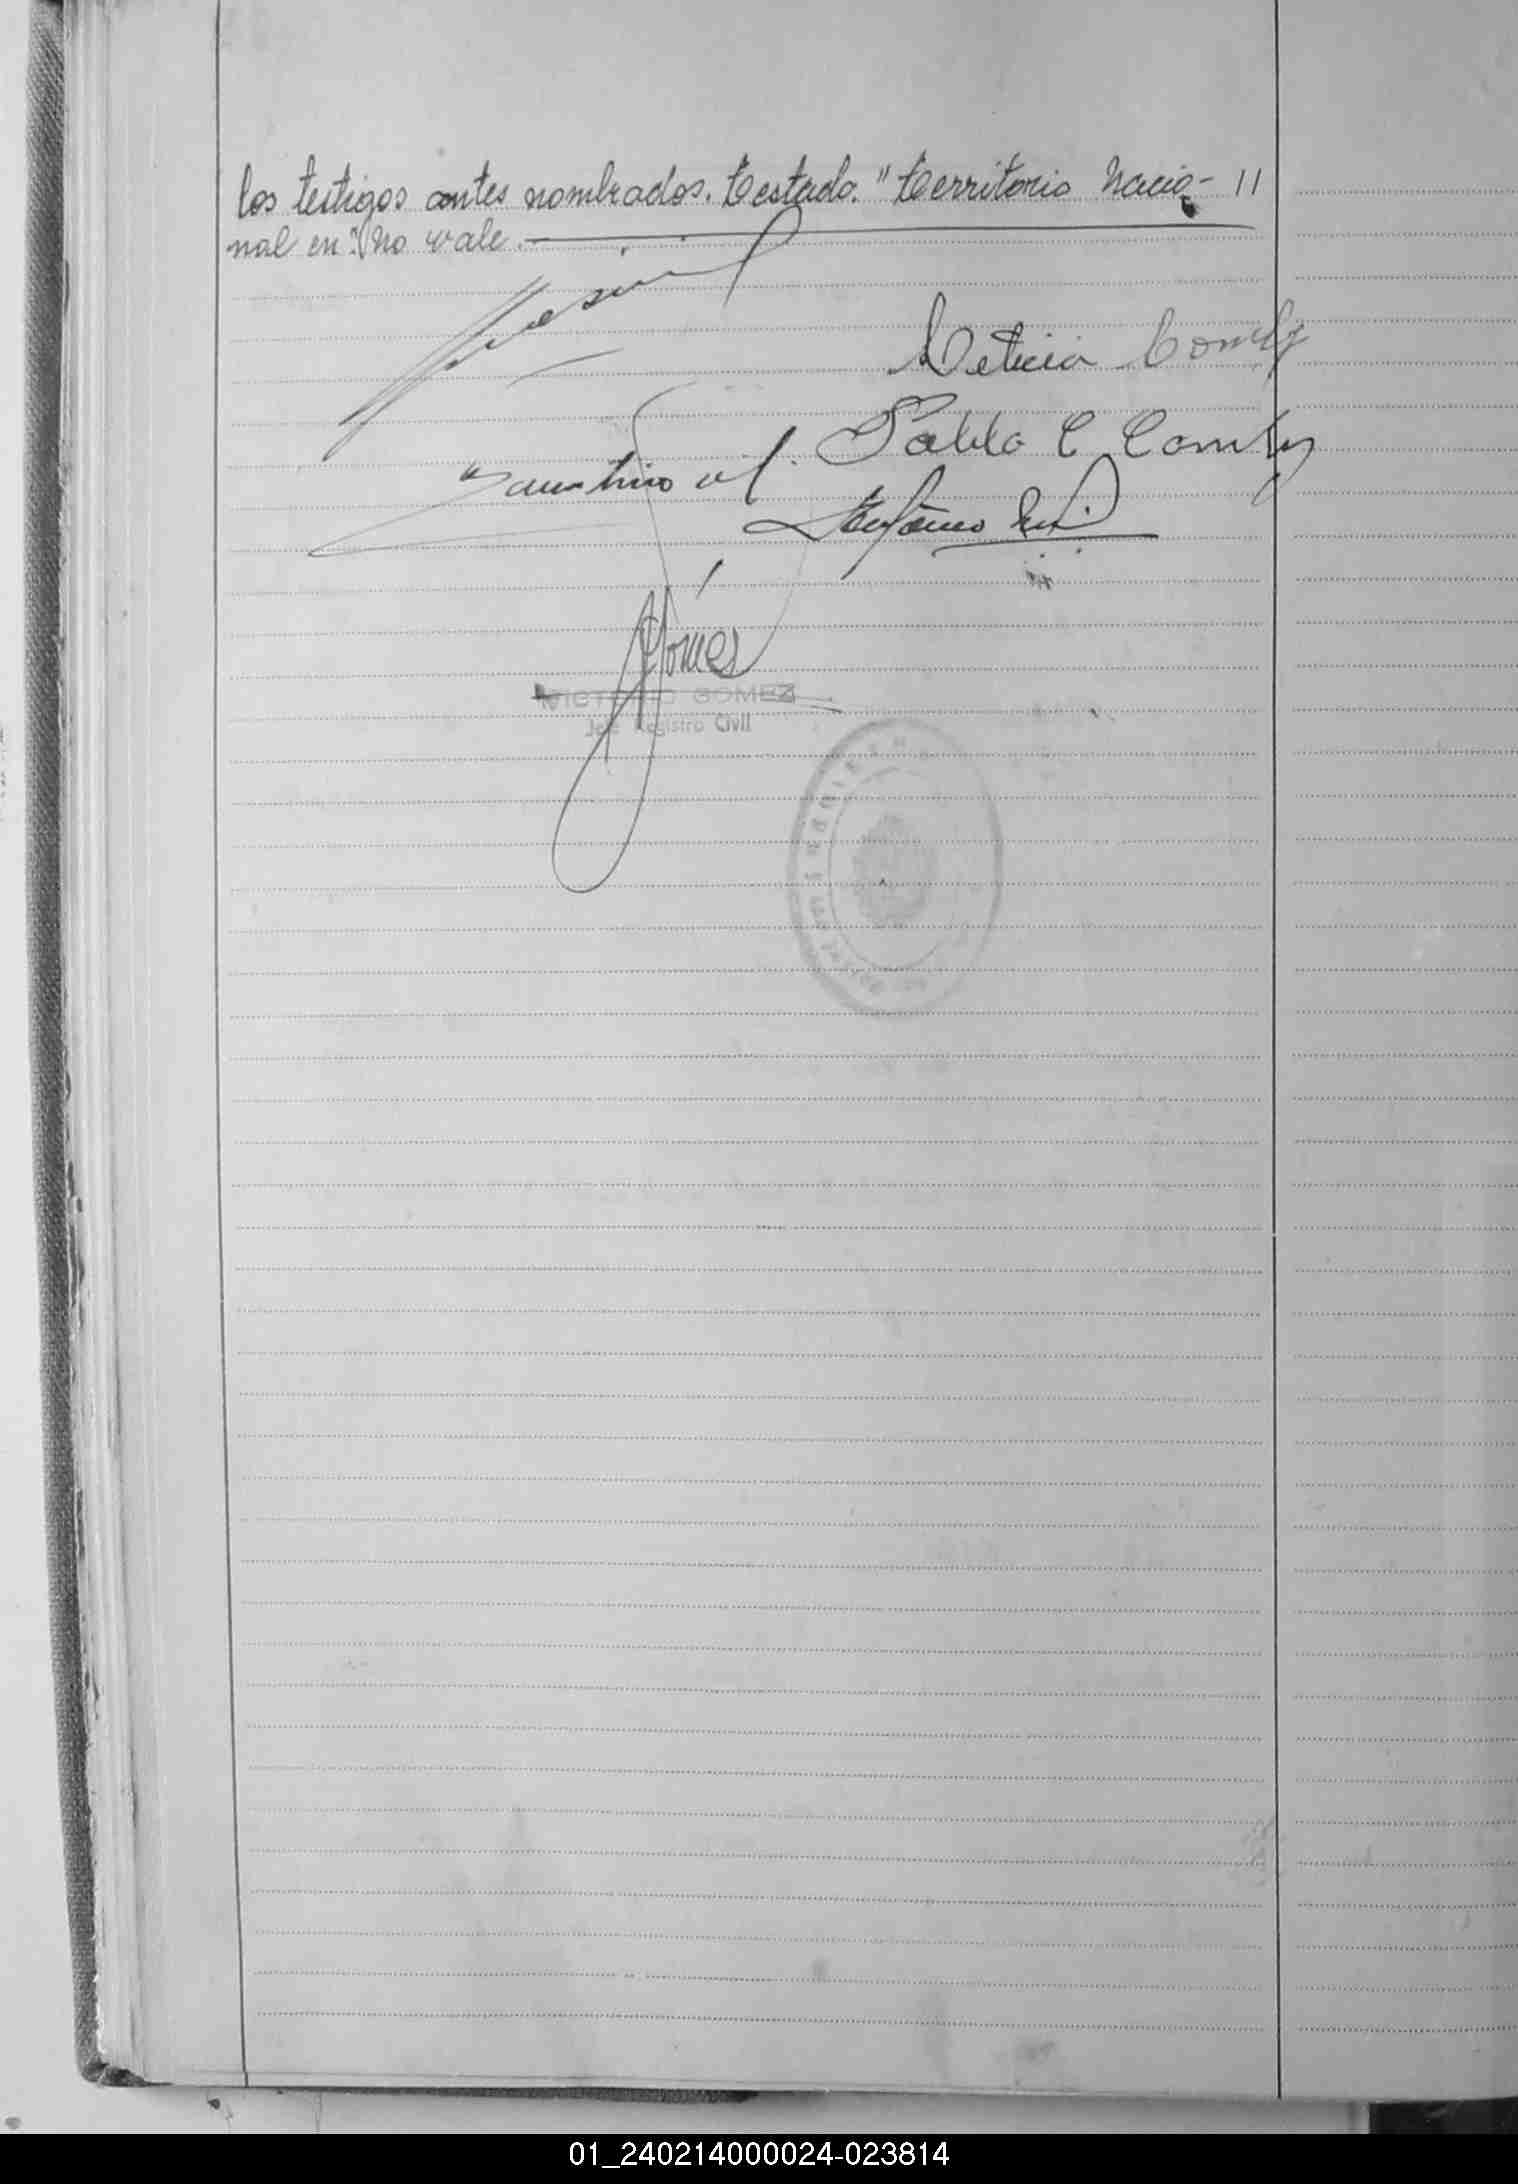 los testigos antes nombrados. Testado. "Territorio Nacio- //
nal en": No vale.
Leticia Gomez
Pablo C Gomez
Faustino
Gómez
VICTORIO GOMEZ
Jefe Registro Civil
01_240214000024-023814